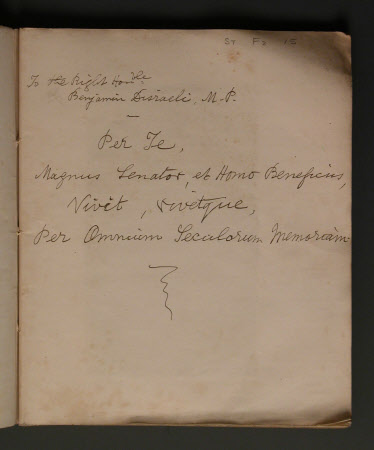 To the Right Honble
Benjamin Disraeli, M.P.
Per Te,
Magnus Senator, et Homo Beneficus,
Vivit, vivetque,
Per Omnium Seculorum Memoriam